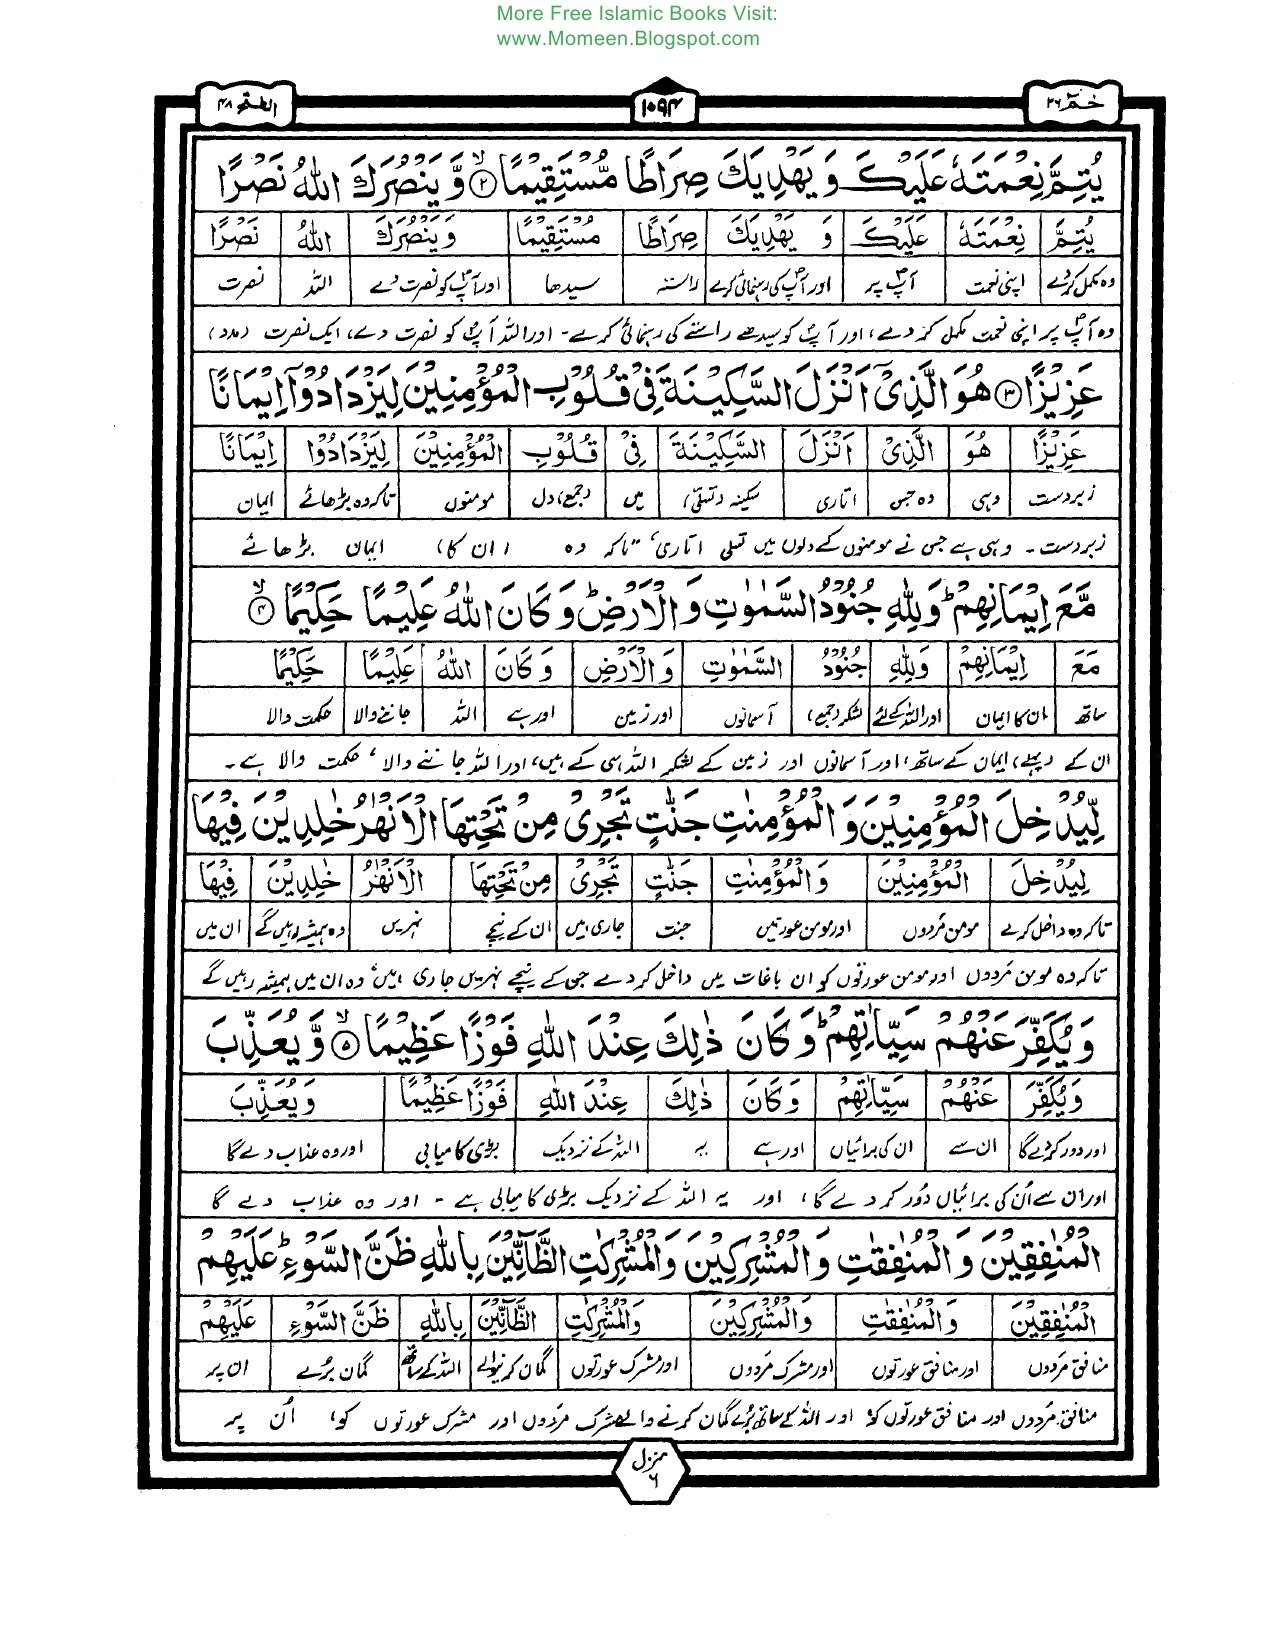 More Free Islamic Books Visit:
www.Momeen.Blogspot.com
حٰمٓ ٢٦
١٠٩٤
الفتح ٤٨
يُتِمَّ نِعْمَتَهٗ عَلَيْكَ وَ يَهْدِيَكَ صِرَاطًا مُّسْتَقِيْمًا ۙ۝٢ وَّ يَنْصُرَكَ اللّٰهُ نَصْرًا
يُتِمَّ نِعْمَتَهٗ عَلَيْكَ وَ يَهْدِيَكَ صِرَاطًا مُسْتَقِيْمًا وَيَنْصُرَكَ اللّٰهُ نَصْرًا
وہ مکمل کردے اپنی نعمت آپؐ پر اور آپؐ کی رہنمائی کرے راستہ سیدھا اور آپؐ کو نصرت دے اللہ نصرت
وہ آپؐ پر اپنی نعمت مکمل کر دے، اور آپؐ کو سیدھے راستے کی رہنمائی کرے۔ اور اللہ آپؐ کو نصرت دے، ایک نصرت (مدد)
عَزِيْزًا ۝٣ هُوَ الَّذِيْٓ اَنْزَلَ السَّكِيْنَةَ فِيْ قُلُوْبِ الْمُؤْمِنِيْنَ لِيَزْدَادُوْٓا اِيْمَانًا
عَزِيْزًا هُوَ الَّذِيْٓ اَنْزَلَ السَّكِيْنَةَ فِيْ قُلُوْبِ الْمُؤْمِنِيْنَ لِيَزْدَادُوْا اِيْمَانًا
زبردست وہی وہ جس اتاری سکینہ (تسلی) میں (جمع) دل مومنوں تاکہ وہ بڑھائے ایمان
زبردست۔ وہی ہے جس نے مومنوں کے دلوں میں تسلی اتاری، تاکہ وہ (ان کا) ایمان بڑھائے
مَّعَ اِيْمَانِهِمْ ؕ وَلِلّٰهِ جُنُوْدُ السَّمٰوٰتِ وَ الْاَرْضِ ؕ وَ كَانَ اللّٰهُ عَلِيْمًا حَكِيْمًا ۙ۝٤
مَعَ اِيْمَانِهِمْ وَلِلّٰهِ جُنُوْدُ السَّمٰوٰتِ وَ الْاَرْضِ وَ كَانَ اللّٰهُ عَلِيْمًا حَكِيْمًا
ساتھ ان کا ایمان اور اللہ کے لئے لشکر (جمع) آسمانوں اور زمین اور ہے اللہ جاننے والا حکمت والا
ان کے (پہلے) ایمان کے ساتھ، اور آسمانوں اور زمین کے لشکر اللہ ہی کے ہیں، اور اللہ جاننے والا، حکمت والا ہے۔
لِّيُدْخِلَ الْمُؤْمِنِيْنَ وَ الْمُؤْمِنٰتِ جَنّٰتٍ تَجْرِيْ مِنْ تَحْتِهَا الْاَنْهٰرُ خٰلِدِيْنَ فِيْهَا
لِيُدْخِلَ الْمُؤْمِنِيْنَ وَ الْمُؤْمِنٰتِ جَنّٰتٍ تَجْرِيْ مِنْ تَحْتِهَا الْاَنْهٰرُ خٰلِدِيْنَ فِيْهَا
تاکہ وہ داخل کرے مومن مردوں اور مومن عورتیں جنت جاری ہیں ان کے نیچے نہریں وہ ہمیشہ رہیں گے ان میں
تاکہ وہ مومن مردوں اور مومن عورتوں کو ان باغات میں داخل کر دے جن کے نیچے نہریں جاری ہیں، وہ ان میں ہمیشہ رہیں گے
وَ يُكَفِّرَ عَنْهُمْ سَيِّاٰتِهِمْ ؕ وَ كَانَ ذٰلِكَ عِنْدَ اللّٰهِ فَوْزًا عَظِيْمًا ۙ۝٥ وَّ يُعَذِّبَ
وَ يُكَفِّرَ عَنْهُمْ سَيِّاٰتِهِمْ وَ كَانَ ذٰلِكَ عِنْدَ اللّٰهِ فَوْزًا عَظِيْمًا وَ يُعَذِّبَ
اور دور کردے گا ان سے ان کی برائیاں اور ہے یہ اللہ کے نزدیک بڑی کامیابی اور وہ عذاب دے گا
اور ان سے اُن کی برائیاں دُور کر دے گا، اور یہ اللہ کے نزدیک بڑی کامیابی ہے۔ اور وہ عذاب دے گا
الْمُنٰفِقِيْنَ وَ الْمُنٰفِقٰتِ وَ الْمُشْرِكِيْنَ وَ الْمُشْرِكٰتِ الظَّآنِّيْنَ بِاللّٰهِ ظَنَّ السَّوْءِ ؕ عَلَيْهِمْ
الْمُنٰفِقِيْنَ وَ الْمُنٰفِقٰتِ وَ الْمُشْرِكِيْنَ وَ الْمُشْرِكٰتِ الظَّآنِّيْنَ بِاللّٰهِ ظَنَّ السَّوْءِ عَلَيْهِمْ
منافق مردوں اور منافق عورتوں اور مشرک مردوں اور مشرک عورتوں گمان کرنیوالے اللہ کے ساتھ گمان بُرے ان پر
منافق مردوں اور منافق عورتوں کو، اور اللہ کے ساتھ بُرے گمان کرنے والے مشرک مردوں اور مشرک عورتوں کو، اُن پر
منزل ٦